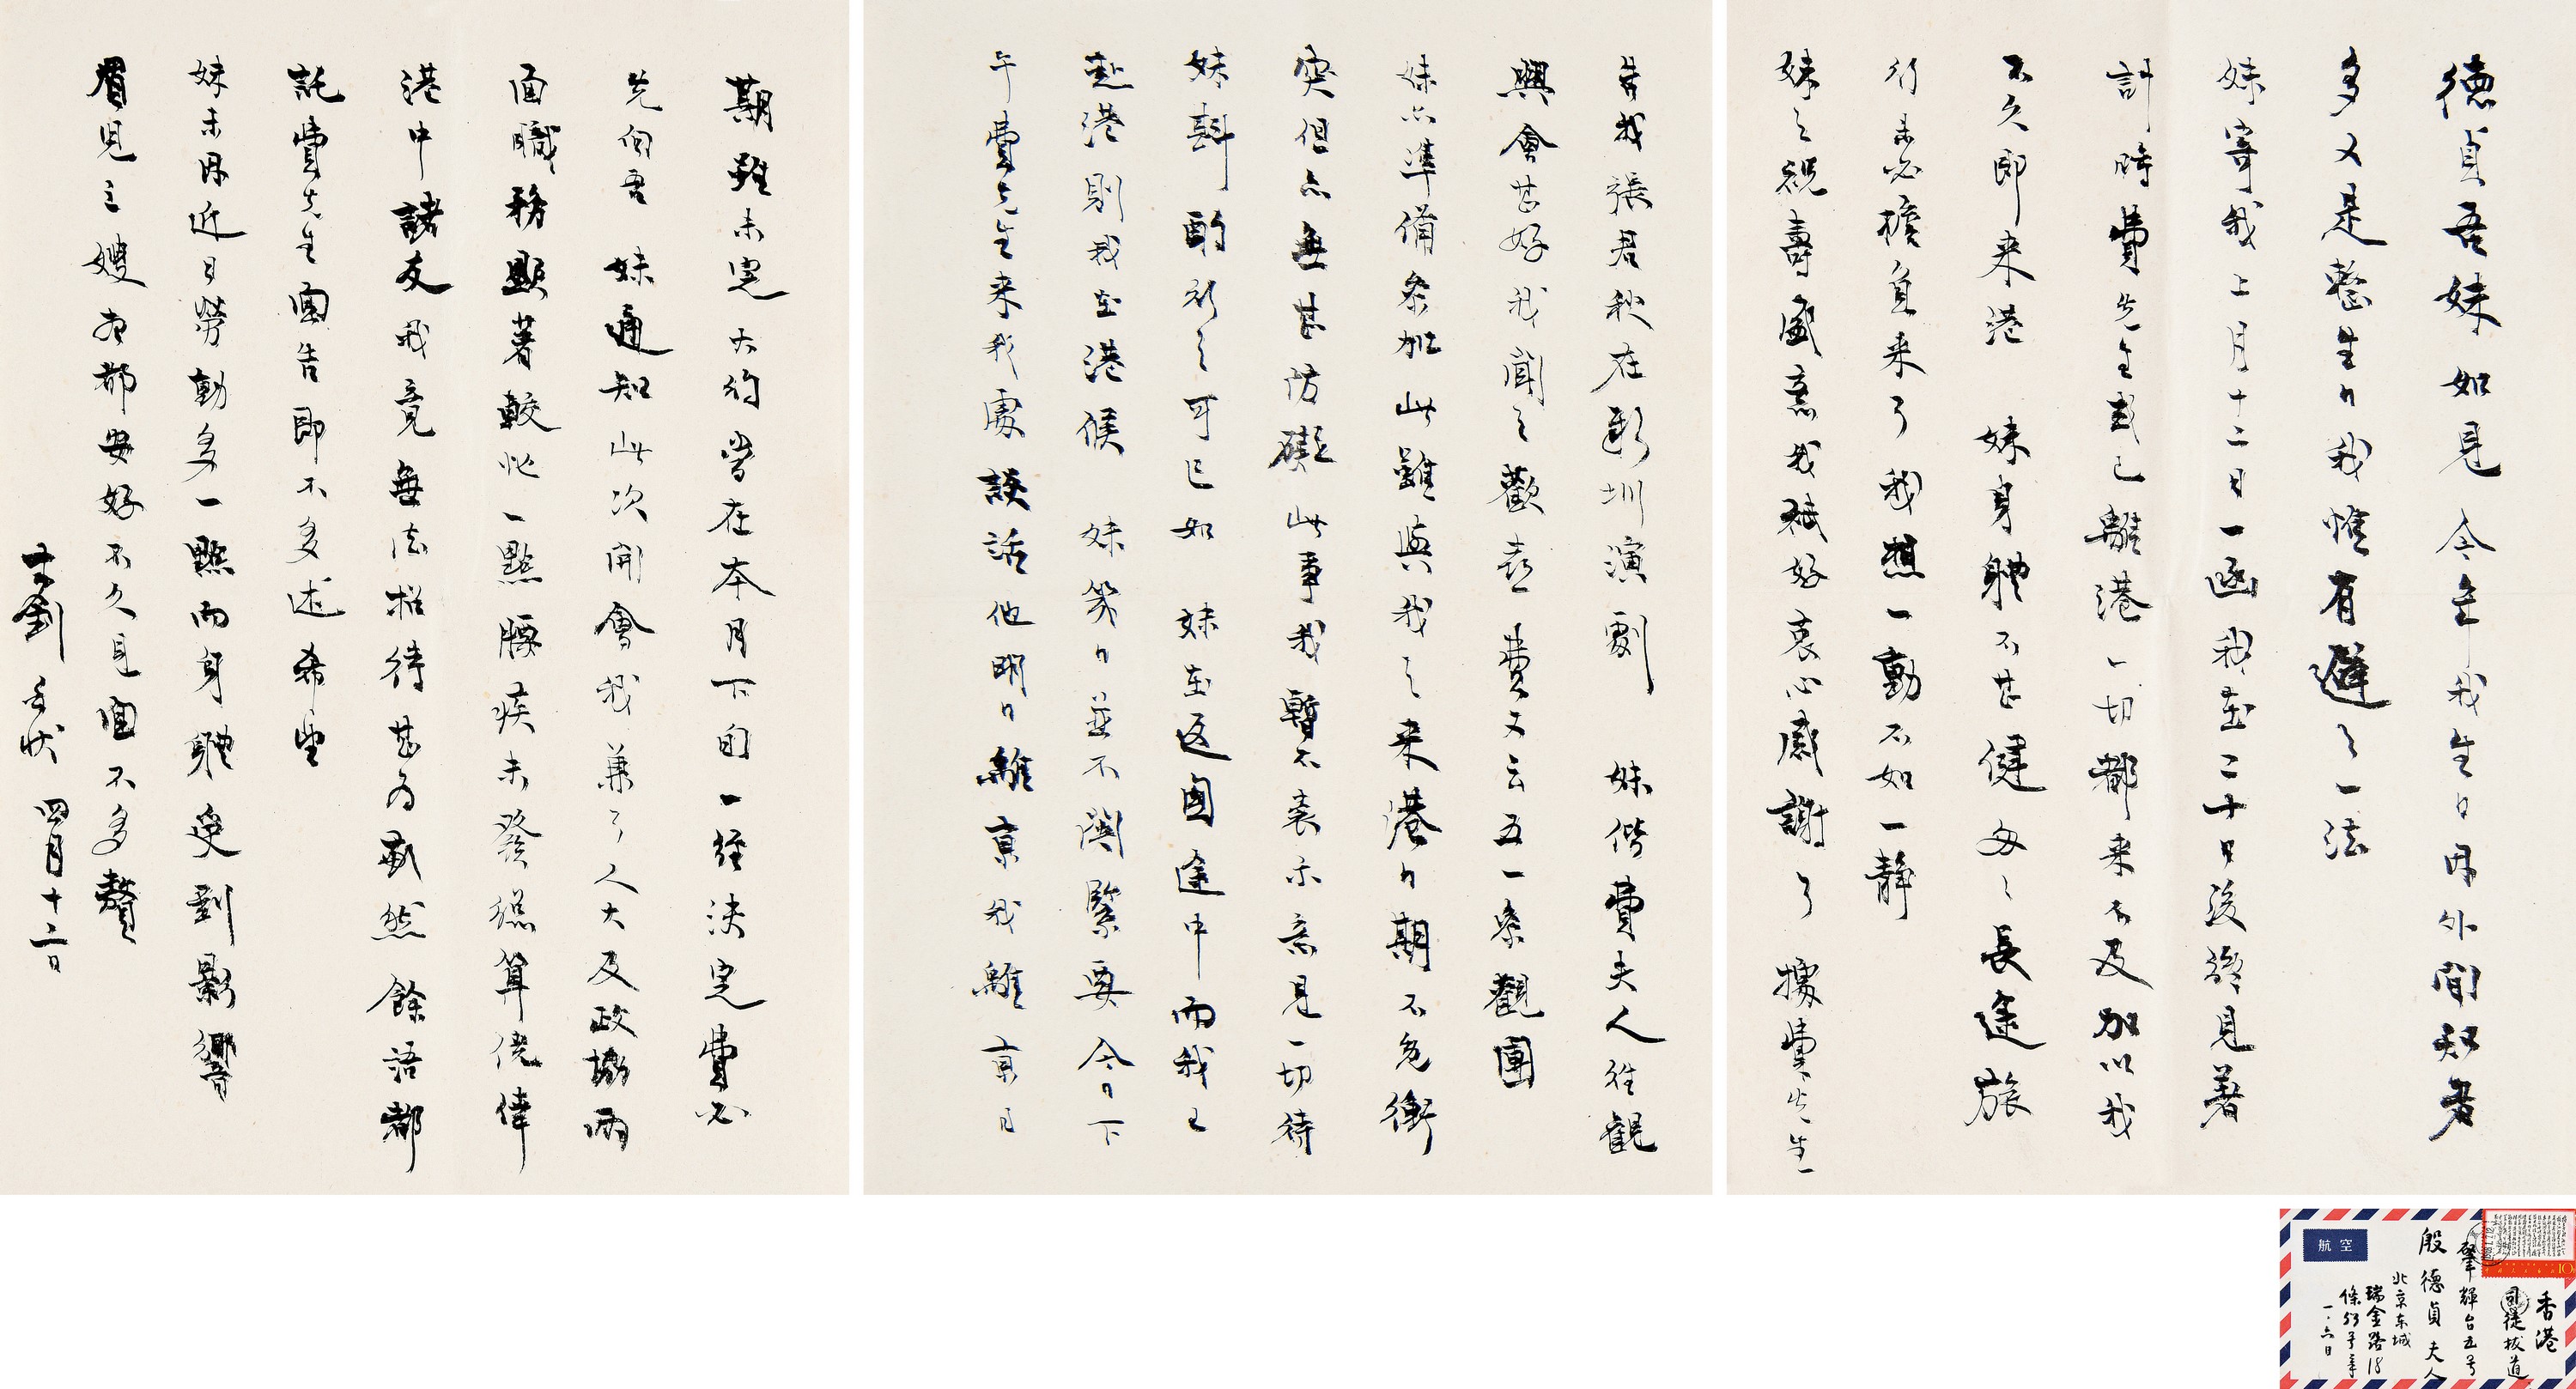 德貞吾妹如見今年我生日因外間知者
多又是整生日我惟有避之一法
妹寄我上月十二日一函我在二十日後始見著
計時費先生或已離港一切都来不及加以我
不久即来港 妹身體不甚健每々長途旅
行未必擔負来了我想一動不如一静
妹之祝壽盛意我祇好衷心感謝了據費先生
告我張君秋在深圳演劇 妹偕費夫人往觀
興會甚好我聞之歡喜費又云五一来觀團
妹亦準備参加此雖與我之来港日期不免衝
突但亦無甚妨礙此事我暫不表示意見一切待
妹斟酌行之可已如妹在返國途中而我已
赴港則我在港候 妹幾日並不關緊要今日下
午費先生来我處談話他明日離京我離京日
期雖未定大約當在本月下旬一經決定費必
先向吾 妹通知此次開會我兼了人大及政協兩
面職務顯著較忙一點腰疾未發總算僥倖
港中諸友我竟無法招待甚为歉然餘語都
託費先生面告即不多述希望
妹未因近日勞動多一點而身體受到影響
眉兄三嫂前都安好不久見面不多贅
士釗 手狀 四月十二日
航空
香港
司徒拔道
肇輝台五号
殷德貞夫人
北京东城
瑞金路18
條53号章
一·六日
10